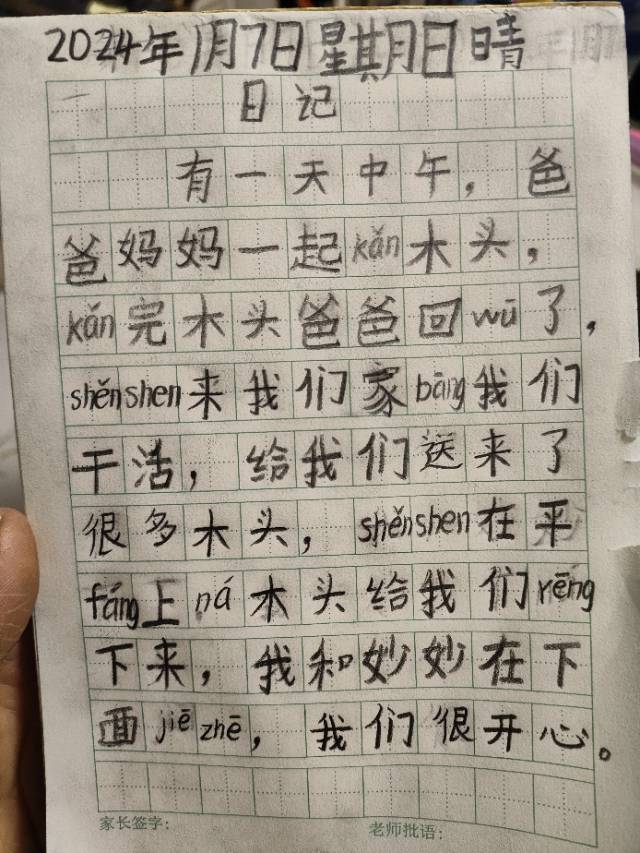 2024年1月7日星期日晴
日记
有一天中午，爸
爸妈妈一起kǎn木头，
kǎn完木头爸爸回wū了，
shěnshen来我们家bāng我们
干活，给我们送来了
很多木头，shěnshen在平
fáng上ná木头给我们rēng
下来，我和妙妙在下
面jiēzhē，我们很开心。
家长签字： 老师批语：